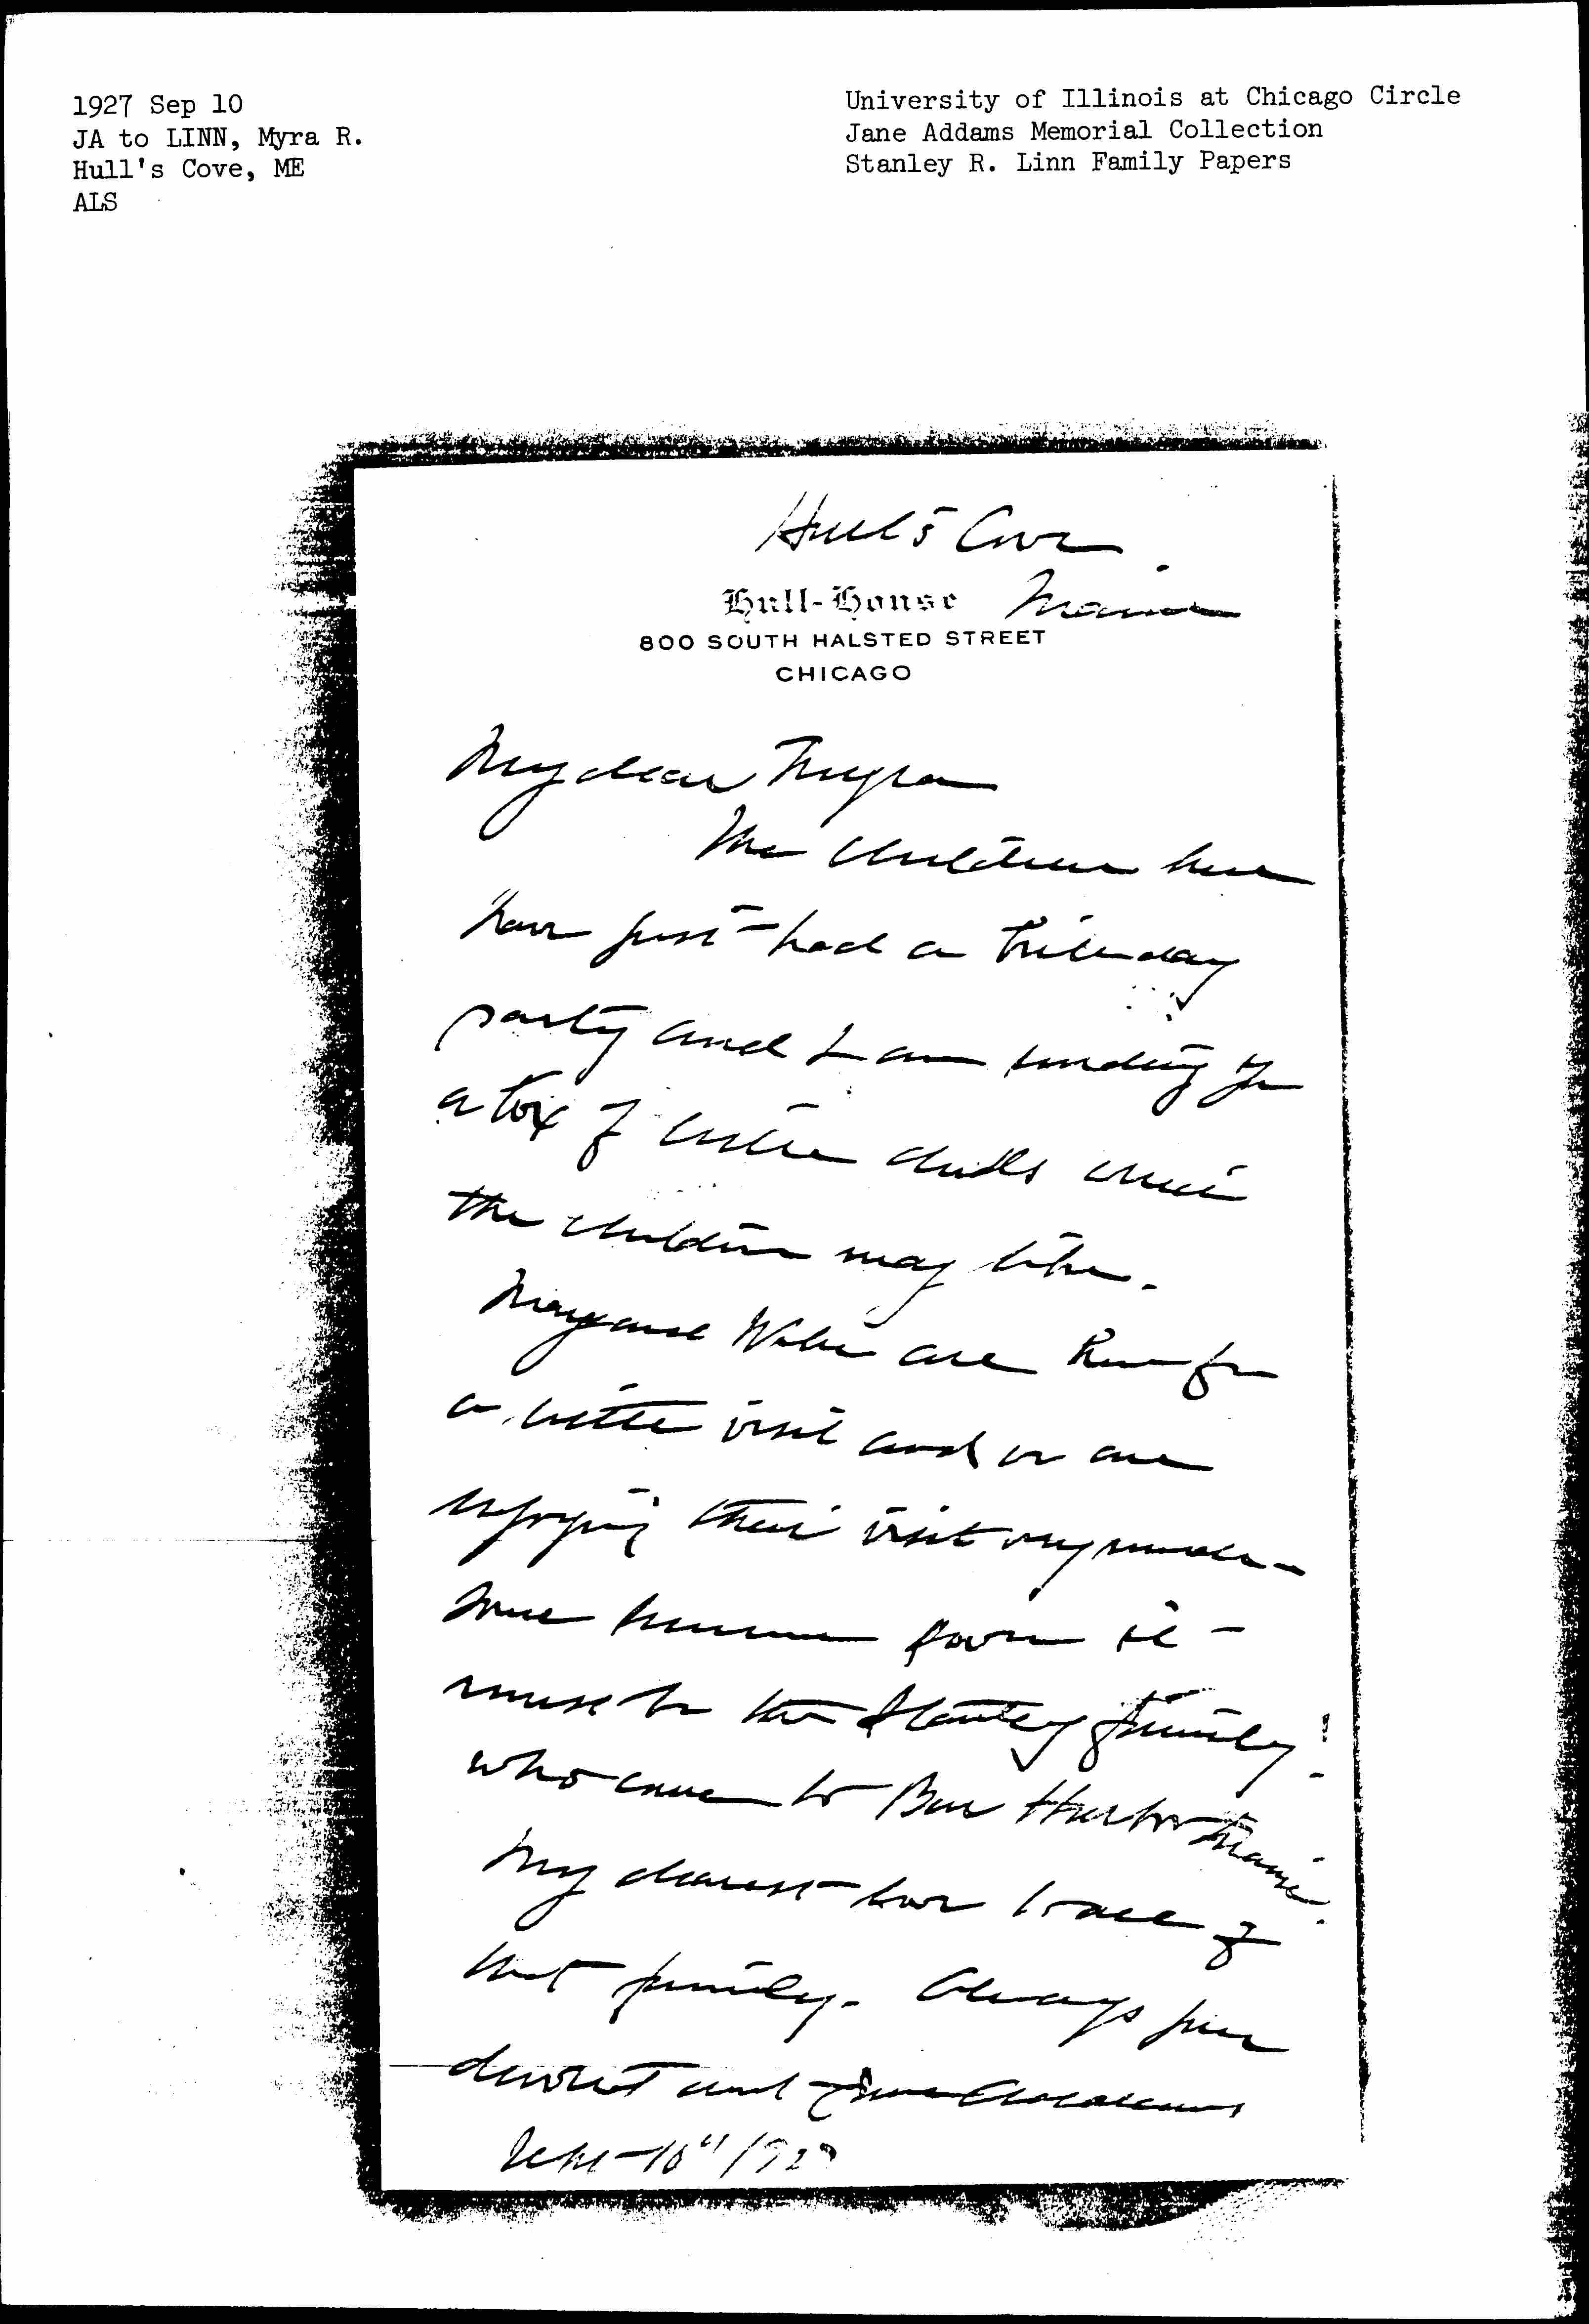 1927 Sep 10
JA to LINN, Myra R.
Hull's Cove, ME
ALS
University of Illinois at Chicago Circle
Jane Addams Memorial Collection
Stanley R. Linn Family Papers
Hull's Cove
Maine
Hull-House
800 SOUTH HALSTED STREET
CHICAGO
My dear Myra
The children here
have just had a birthday
party and I am sending you
a box of little which
the children may like.
are here for
a little visit and we are
enjoying their visit very much -
Some summer soon it
must be the Stanley family!
who come to Bar Harbor Maine.
My dearest love to all of
that family. Always your
devoted aunt Jane Addams
Sept 10" 1927